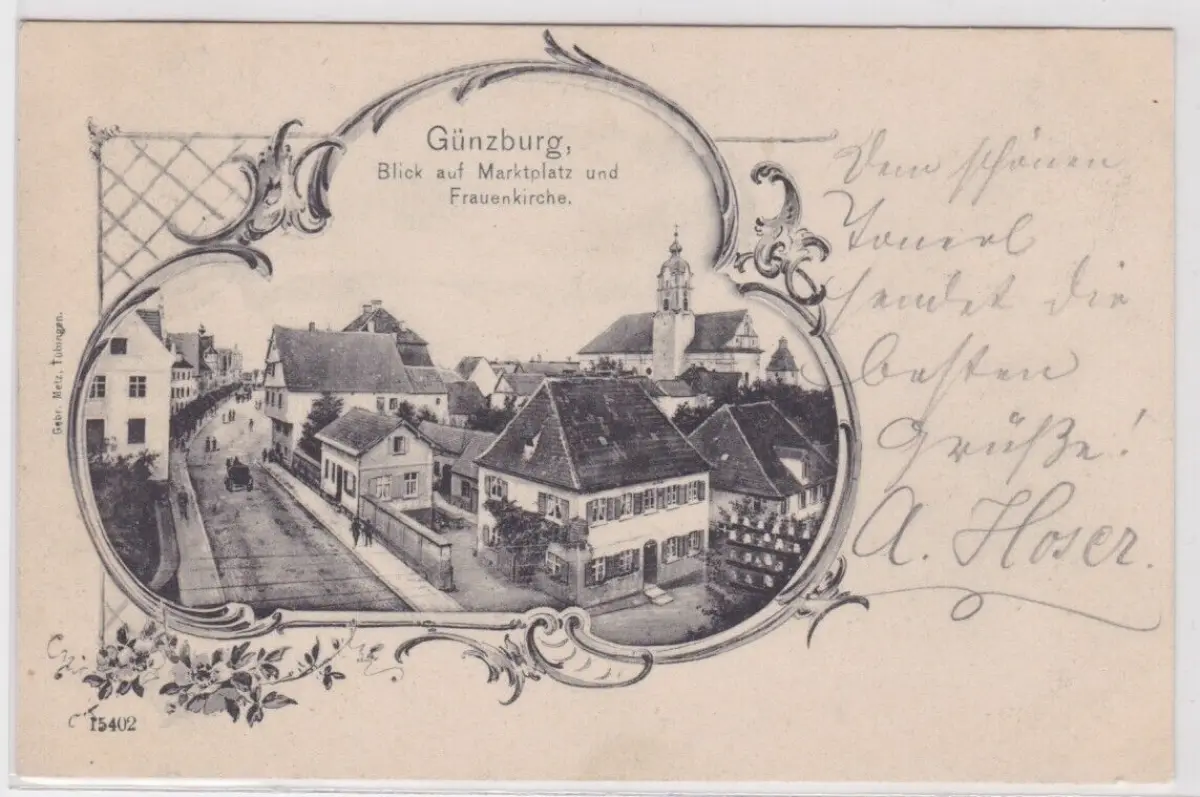 Günzburg,
Blick auf Marktplatz und
Frauenkirche.
Dem schönen
sendet die
besten
Grüße!
A. Hoser.
Gebr. Metz, Tübingen.
15402